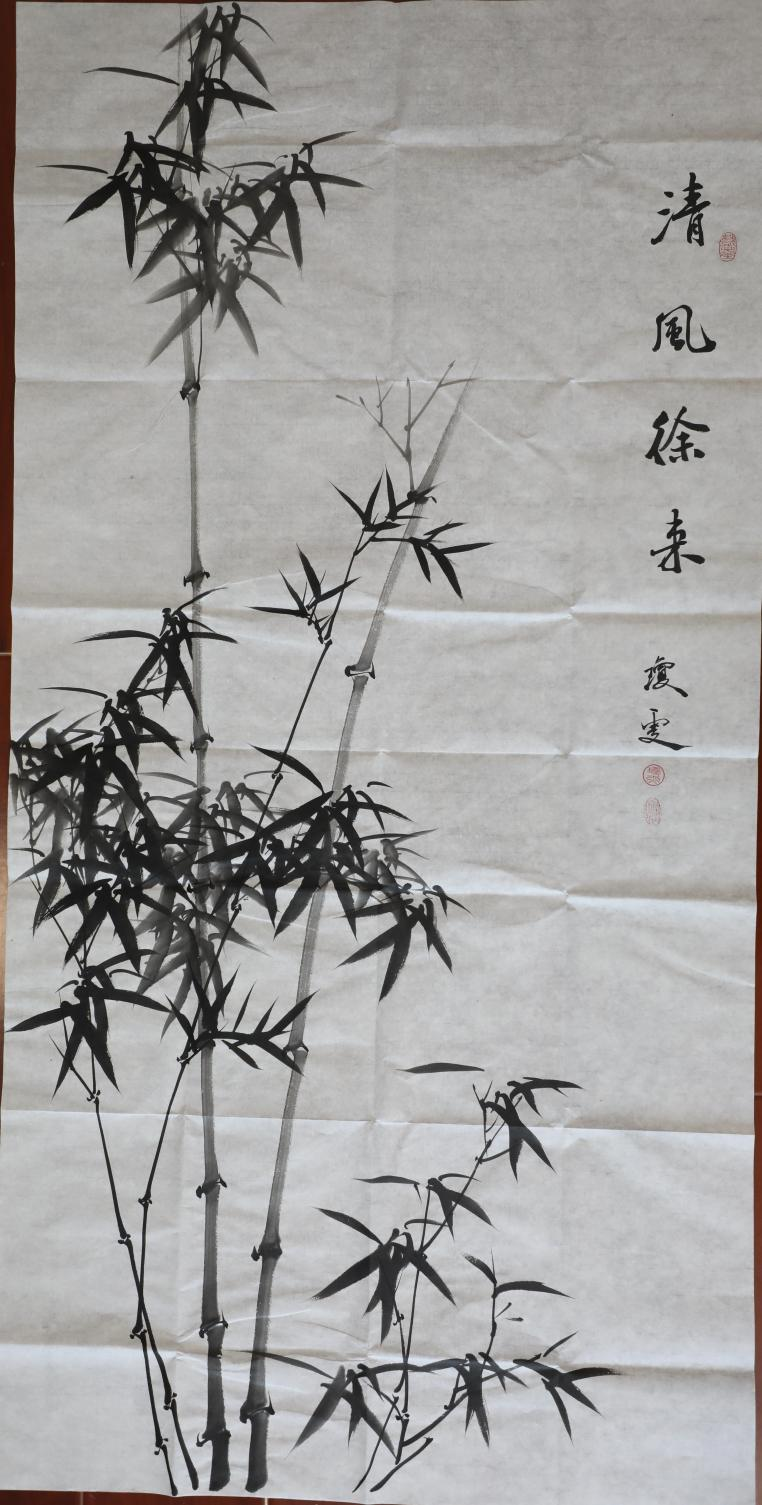 清風徐来
瓊雯